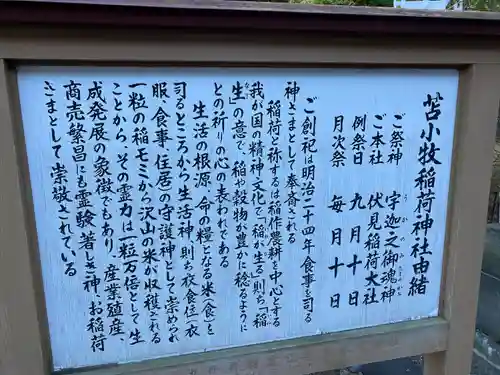 苫小牧稲荷神社由緒
ご祭神　宇迦之御魂神
うかのみたまのかみ
ご本社　伏見稲荷大社
例祭日　九月十日
月次祭　毎月十日
ご創祀は明治二十四年食事を司る
神さまとして奉斎される
稲荷と称するは稲作農耕を中心とする
我が国の精神文化で「稲が生る」則ち、「稲
生」の意で、稲や穀物が豊かに稔るように
との祈りの心の表われである
生活の根源、命の糧となる米（食）を
司るところから生活神、則ち衣食住（衣
服、食事、住居）の守護神として崇められ
一粒の稲モミから沢山の米が収穫される
ことから、その霊力は「一粒万倍」として生
成発展の象徴でもあり、産業殖産、
商売繁昌にも霊験著しき神「お稲荷
さま」として崇敬されている